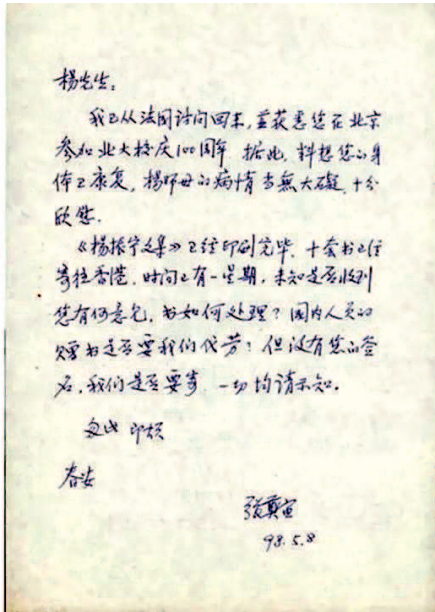 杨先生:
我已从法国访问回来,并获悉您在北京
参加北大校庆100周年。据此,料想您的身
体已康复,杨师母的病情当無大碍,十分
欣慰.
《杨振宁文集》已经印刷完毕,十套书已经
寄往香港,时间已有一星期,未知是否收到
您有何意见,书如何处理?国内人员的
赠书是否要我们代劳?但没有您的签
名,我们是否要寄,一切均请示知。
专此 即颂
春安
张奠宙
98.5.8